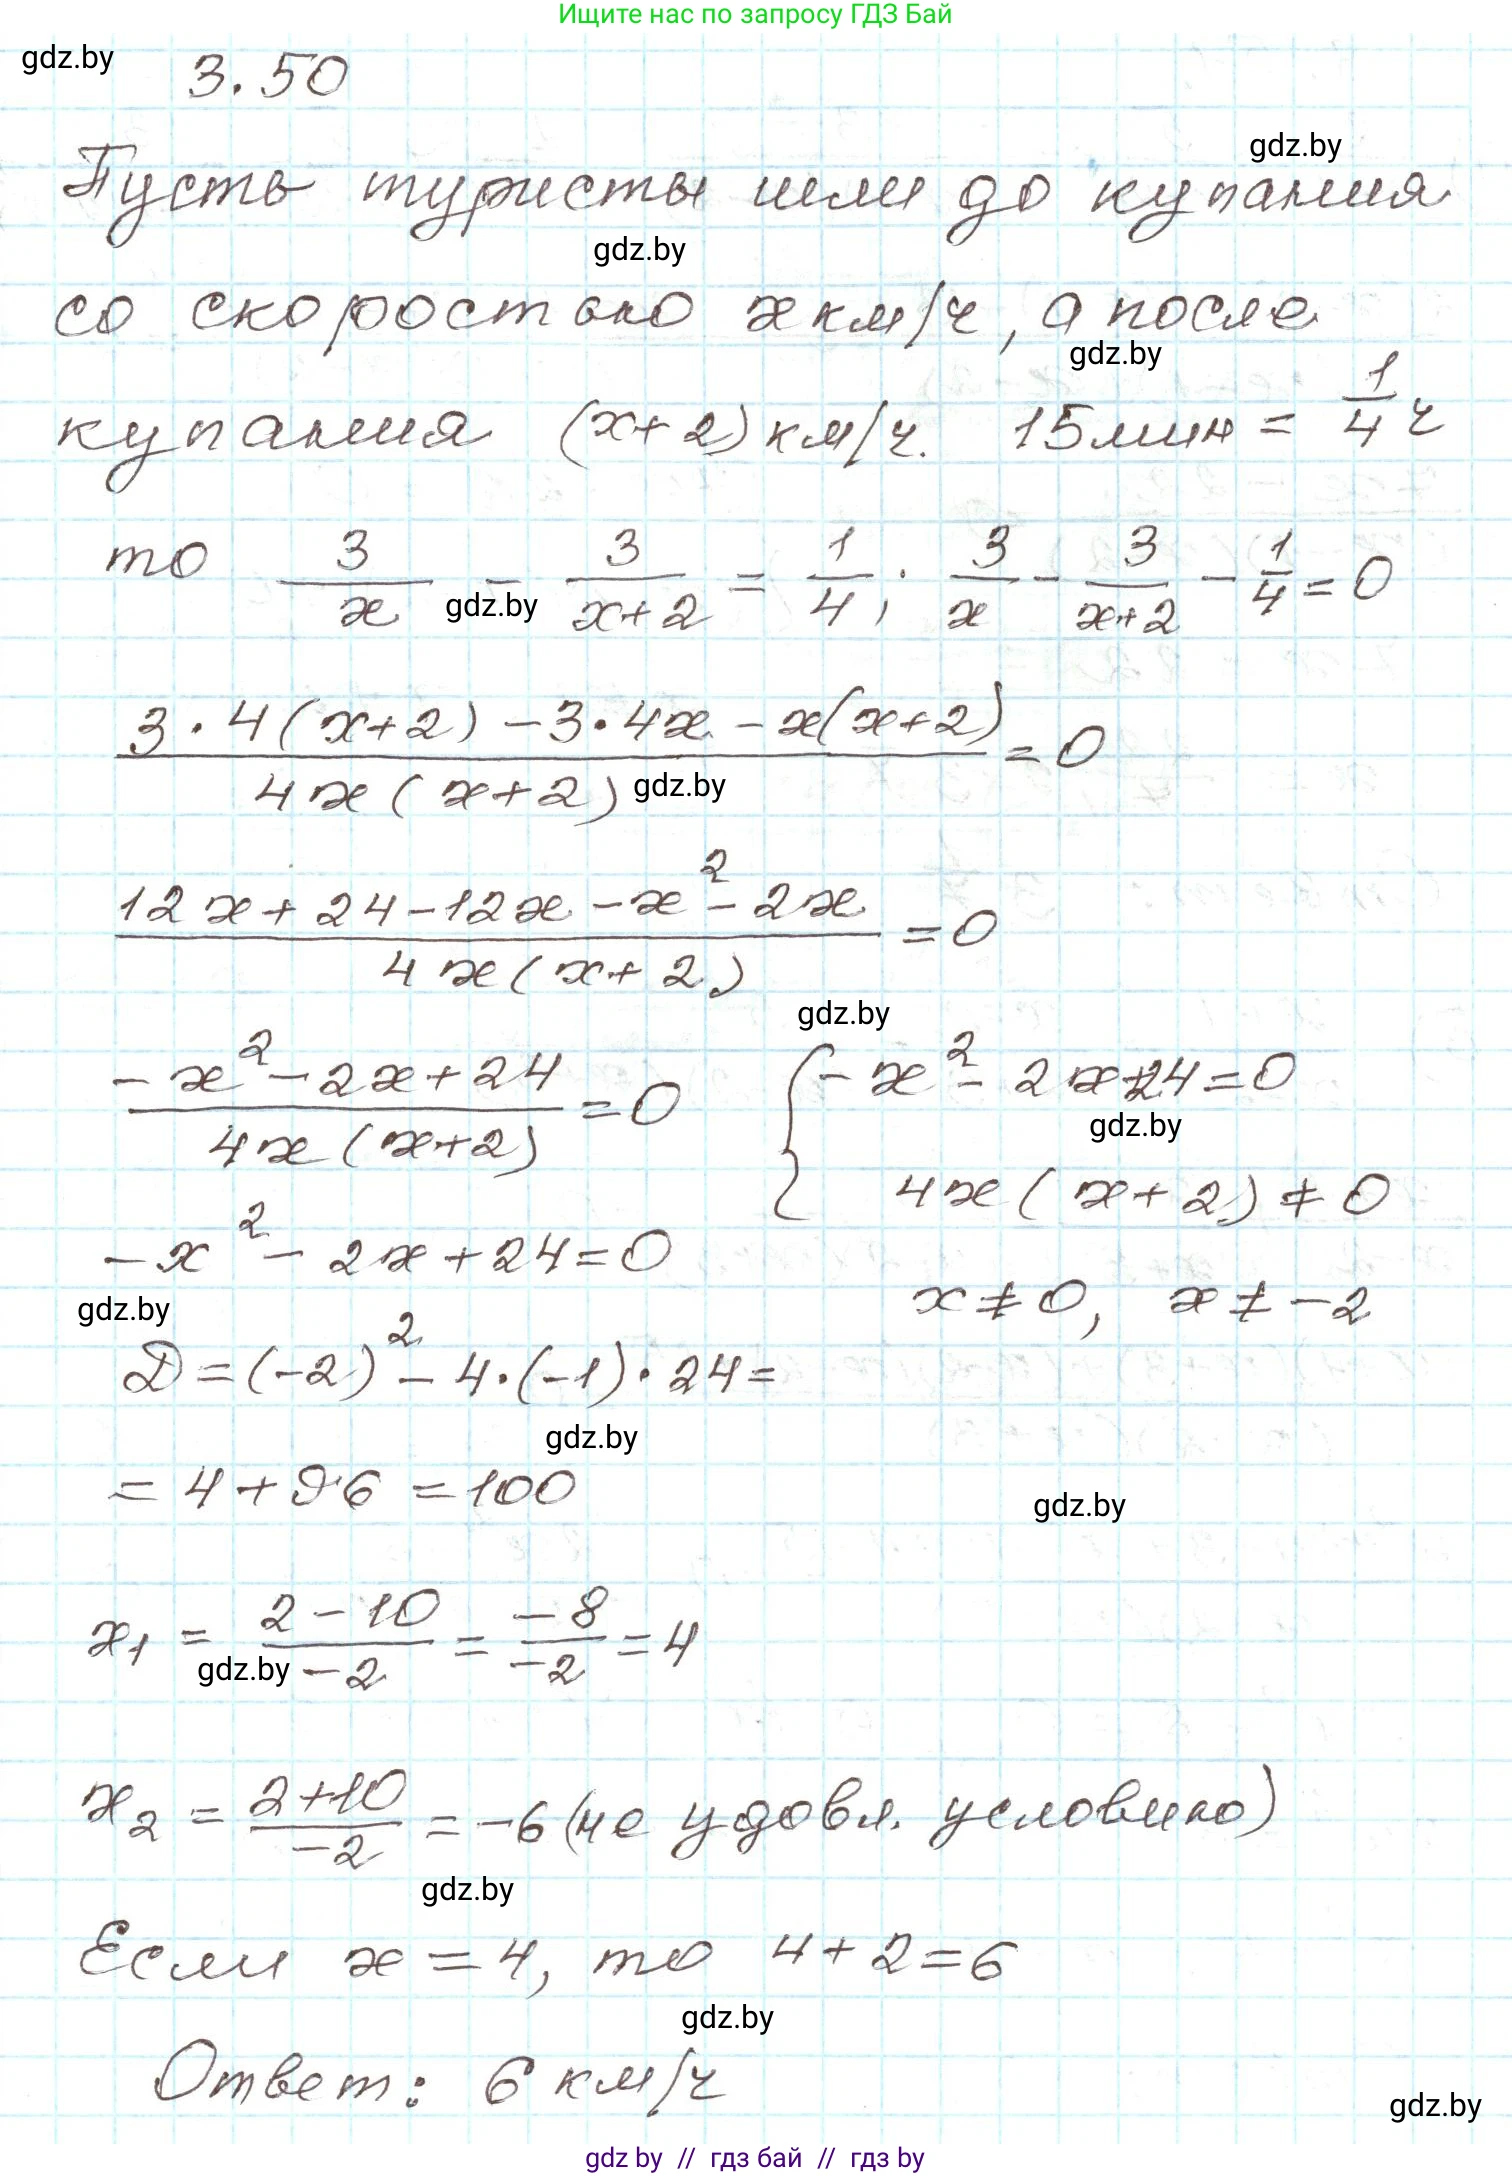 Ищите нас по запросу ГДЗ Бай
gdz.by
3.50
gdz.by
Пусть туристы шли до купания
gdz.by
со скоростью x км/ч, а после
gdz.by
купания (x+2) км/ч. 15 мин = 1/4 ч
то 3/x - 3/(x+2) = 1/4; 3/x - 3/(x+2) - 1/4 = 0
gdz.by
(3·4(x+2) - 3·4x - x(x+2))/(4x(x+2)) = 0
gdz.by
(12x + 24 - 12x - x² - 2x)/(4x(x+2)) = 0
gdz.by
(-x² - 2x + 24)/(4x(x+2)) = 0 { -x² - 2x + 24 = 0
gdz.by
4x(x+2) ≠ 0
-x² - 2x + 24 = 0
x ≠ 0, x ≠ -2
gdz.by
D = (-2)² - 4·(-1)·24 =
gdz.by
= 4 + 96 = 100
gdz.by
x₁ = (2-10)/-2 = -8/-2 = 4
gdz.by
x₂ = (2+10)/-2 = -6 (не удовл. условию)
gdz.by
Если x = 4, то 4+2=6
gdz.by
Ответ: 6 км/ч
gdz.by
gdz by // гдз бай // гдз by